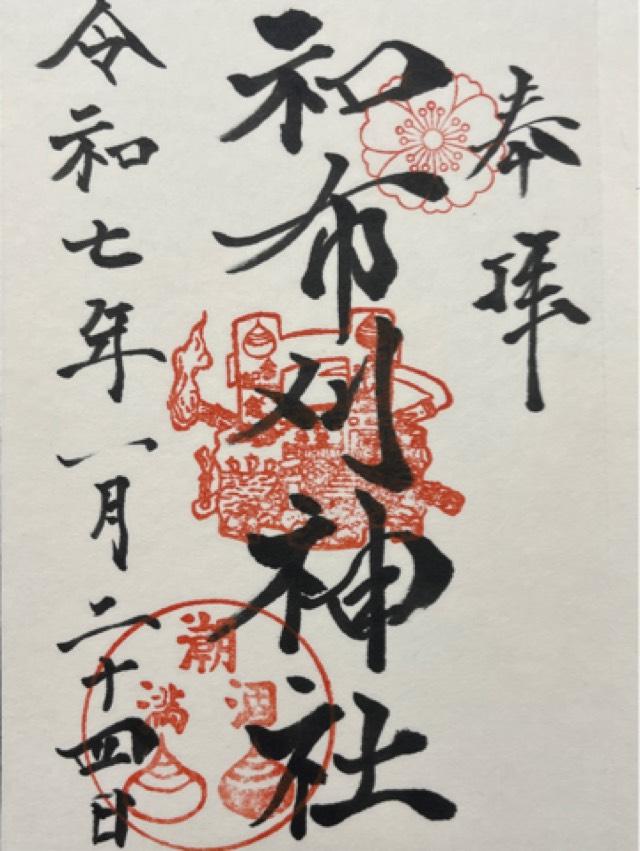 奉拝
和布刈神社
令和七年一月二十四日
潮
満 涸